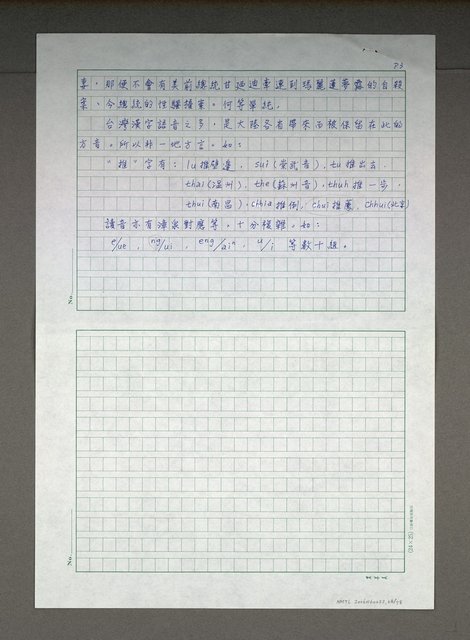 P.3
妻。那便不會有美前總統甘迺迪牽連到瑪麗蓮夢露的自殺
案、今總統的性騷擾案。何等單純。
台灣漢字語音之多，是大陸各省帶來而被保留在此的
方音。所以非一地方言。如：
"推"字有：lu推壁邊， sui(崇武音)，tu推出去，
thai(溫州)，the(蘇州音)，thuh推一步，
thui(南昌)，chhia推倒，chui推薦，chhui(北京)
讀音亦有漳泉對應等，十分複雜。如：
e/ue， ng/ui， eng/aiⁿ， u/i 等數十組。
No.
No.
(24×25)